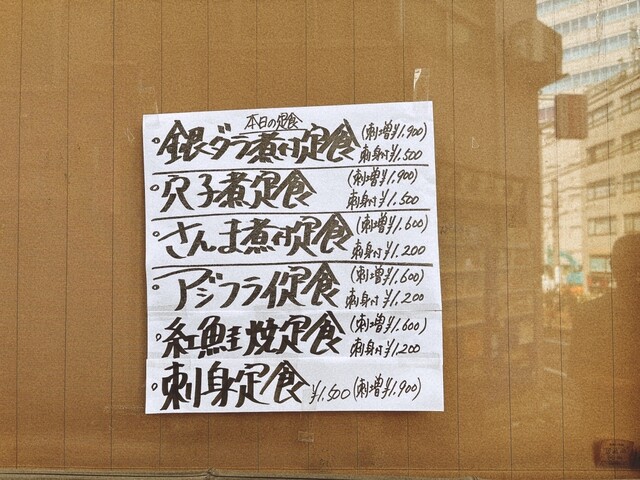 本日の定食
銀ダラ煮付定食 (刺増¥1.900)
刺身付¥1.500
穴子煮定食 (刺増¥1.900)
刺身付¥1.500
さんま煮付定食 (刺増¥1.600)
刺身付¥1.200
アジフライ定食 (刺増¥1.600)
刺身付¥1.200
紅鮭焼定食 (刺増¥1.600)
刺身付¥1.200
刺身定食 ¥1.500 (刺増¥1.900)